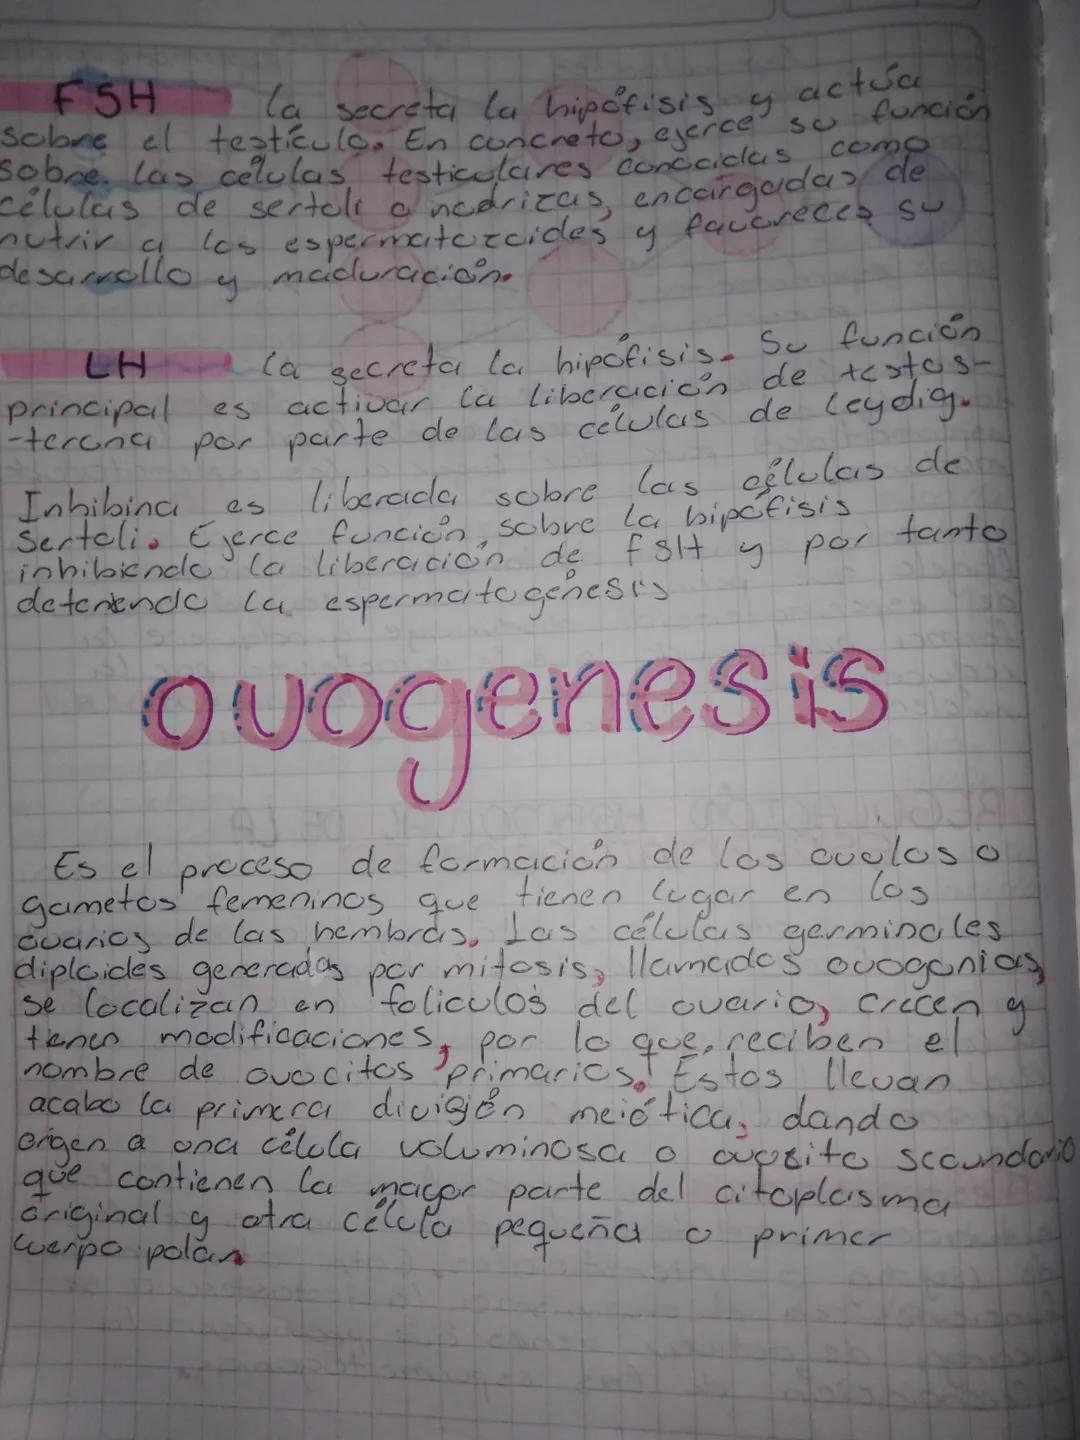 FSH la secreta la hipófisis y actúa
sobre el testículo. En concreto, ejerce su función
sobre las células testiculares conocidas como
células de sertoli o nodrizas, encargadas de
nutrir a los espermatozoides y favoreces su
desarrollo y maduración.
LH la secreta la hipófisis. Su función
principal es activar la liberación de testos-
-terona por parte de las células de leydig.
Inhibina es liberada sobre las células de
Sertoli. Ejerce función sobre la hipófisis
inhibiendo la liberación de FSH y por tanto
deteniendo la espermatogénesis
ovogenesis
Es el proceso de formación de los ovulos o
gametos femeninos que tienen lugar en los
ovarios de las hembras. Las células germinales
diploides generadas por mitosis, llamados ovogonias,
se localizan en foliculos del ovario, crecen y
tienen modificaciones, por lo que reciben el
nombre de ovocitos primarios. Estos llevan
acabo la primera división meiótica, dando
origen a una célula voluminosa o ovocito secundario
que contienen la mayor parte del citoplasma
original y otra célula pequeña o primer
cuerpo polar.